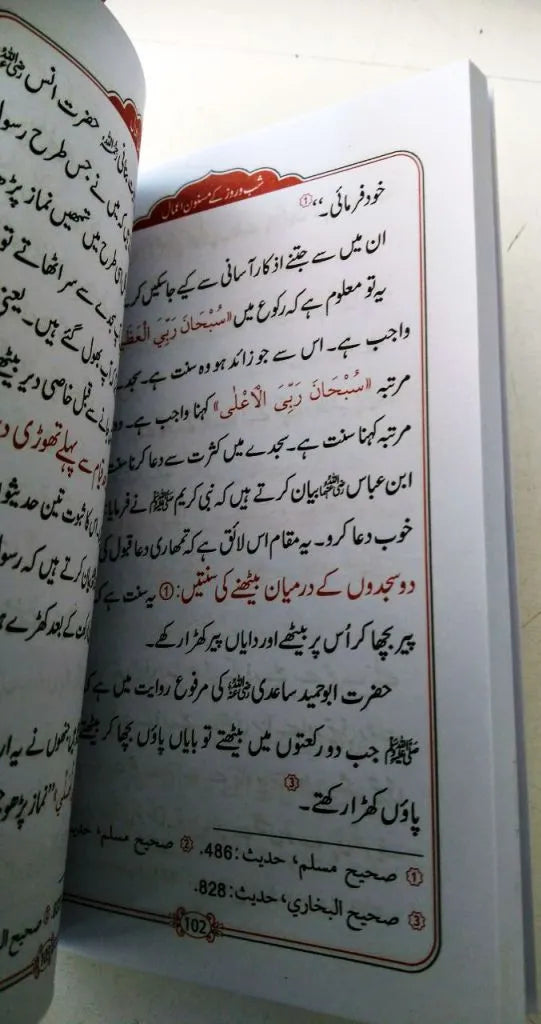 شب و روز کے مسنون اعمال
خود فرمائی۔“①
ان میں سے جتنے اذکار آسانی سے کیے جاسکیں
یہ تو معلوم ہے کہ رکوع میں «سُبْحَانَ رَبِّيَ
واجب ہے۔ اس سے جو زائد ہو وہ سنت ہے۔
مرتبہ «سُبْحَانَ رَبِّيَ الْأَعْلٰى» کہنا واجب ہے۔
مرتبہ کہنا سنت ہے۔ سجدے میں کثرت سے دعا کرنا
ابن عباس رضی اللہ عنہما بیان کرتے ہیں کہ نبی کریم ﷺ نے فرمایا
خوب دعا کرو۔ یہ مقام اس لائق ہے کہ تمھاری دعا قبول کی
دو سجدوں کے درمیان بیٹھنے کی سنتیں: ① یہ سنت ہے
پیر بچھا کر اُس پر بیٹھے اور دایاں پیر کھڑا رکھے۔
حضرت ابوحمید ساعدی رضی اللہ عنہ کی مرفوع روایت میں ہے
ﷺ جب دو رکعتوں میں بیٹھتے تو بایاں پاؤں بچھا کر
پاؤں کھڑا رکھتے۔③
① صحيح مسلم، حديث:486. ② صحيح مسلم،
③ صحيح البخاري، حديث:828.
102
حضرت انس رضی اللہ عنہ
میں نے جس طرح رسول
طرح میں تمھیں نماز پڑھ
سے سر اٹھاتے تو
بھول گئے ہیں۔ یعنی
سے قبل خاصی دیر
سے پہلے تھوڑی
کا ثبوت تین
کرتے ہیں کہ رسول
کے بعد کھڑے
انھوں نے یہ
”نماز پڑھو